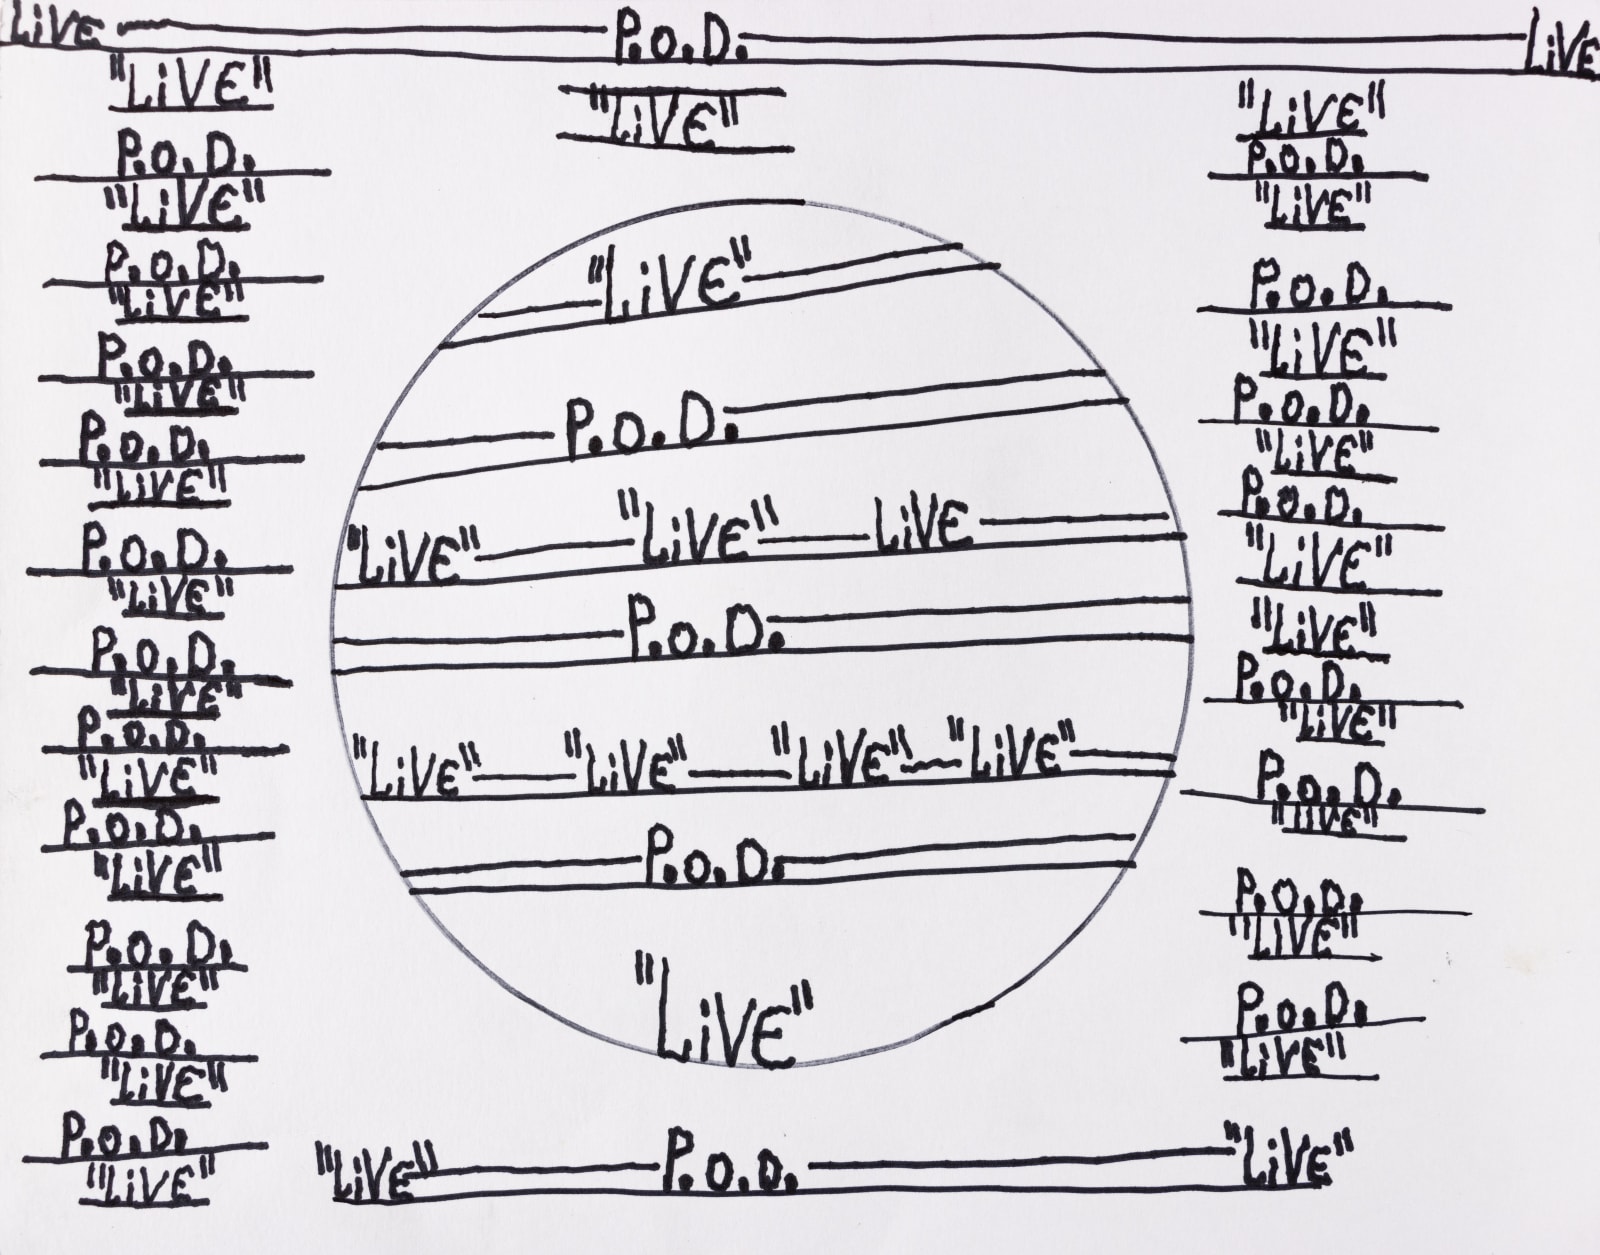 LiVE P.o.D. LiVE
"LiVE"
P.o.D.
"LiVE"
P.o.D.
"LiVE"
P.o.D.
"LiVE"
P.o.D.
"LiVE"
P.o.D.
"LiVE"
P.o.D.
"LiVE"
P.o.D.
"LiVE"
P.o.D.
"LiVE"
P.o.D.
"LiVE"
P.o.D.
"LiVE"
P.o.D.
"LiVE"
"LiVE"
"LiVE"
P.o.D.
"LiVE" "LiVE" LiVE
P.o.D.
"LiVE" "LiVE" "LiVE" "LiVE"
P.o.D.
"LiVE"
"LiVE" P.o.D. "LiVE"
"LiVE"
P.o.D.
"LiVE"
P.o.D.
"LiVE"
P.o.D.
"LiVE"
P.o.D.
"LiVE"
"LiVE"
P.o.D.
"LiVE"
P.o.D.
"LiVE"
P.o.D.
"LiVE"
P.o.D.
"LiVE"